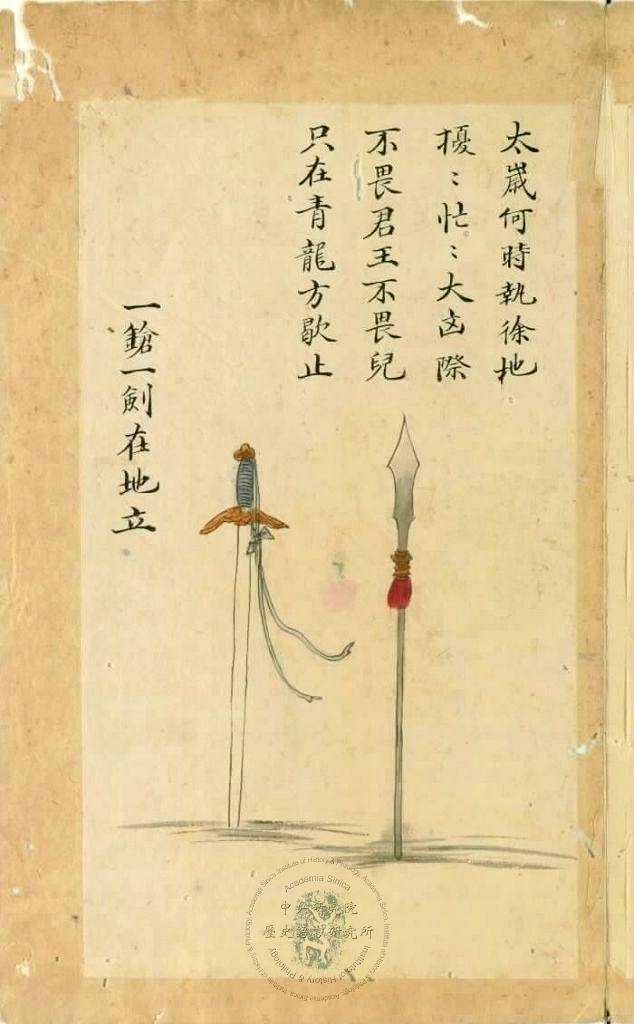 太嵗何時執徐地
擾〻忙〻大㐫際
不畏君王不畏兒
只在青龍方歇止
一鎗一劍在地立
Academia Sinica
中央研究院
歷史語言研究所
Institute of History & Philology